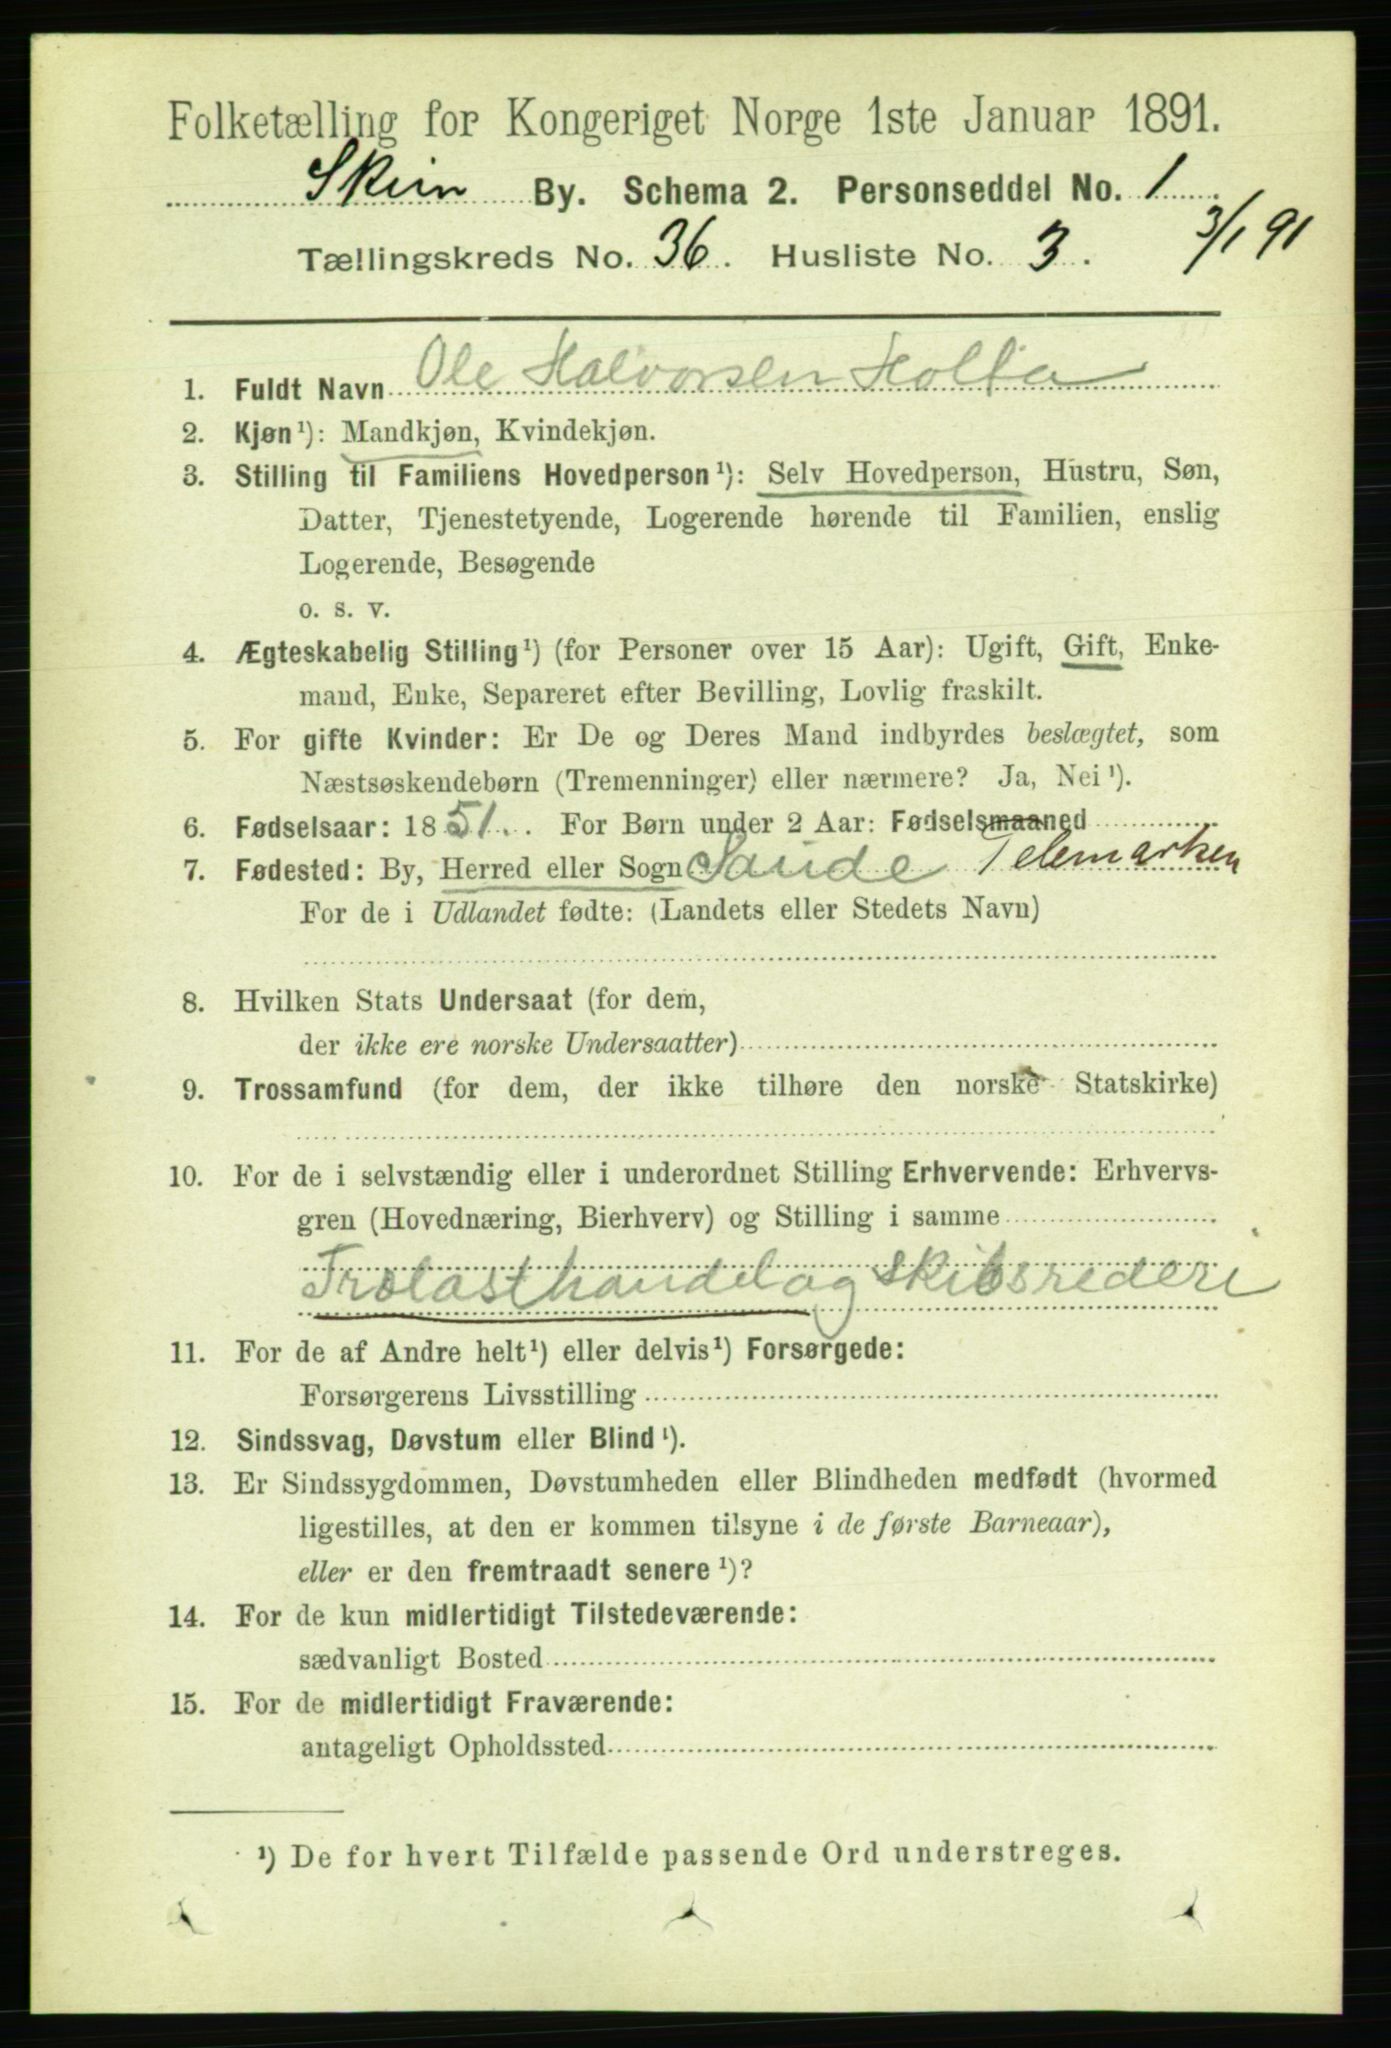 Folketælling for Kongeriget Norge 1ste Januar 1891.
Skien By. Schema 2. Personseddel No. 1
Tællingskreds No. 36. Husliste No. 3. 3/1 91
1. Fuldt Navn Ole Halvorsen Holta
2. Kjøn¹): Mandkjøn, Kvindekjøn.
3. Stilling til Familiens Hovedperson¹): Selv Hovedperson, Hustru, Søn,
Datter, Tjenestetyende, Logerende hørende til Familien, enslig
Logerende, Besøgende
o. s. v.
4. Ægteskabelig Stilling¹) (for Personer over 15 Aar): Ugift, Gift, Enke-
mand, Enke, Separeret efter Bevilling, Lovlig fraskilt.
5. For gifte Kvinder: Er De og Deres Mand indbyrdes beslægtet, som
Næstsøskendebørn (Tremenninger) eller nærmere? Ja, Nei¹).
6. Fødselsaar: 1851. For Børn under 2 Aar: Fødselsmaaned
7. Fødested: By, Herred eller Sogn Saude Telemarken
For de i Udlandet fødte: (Landets eller Stedets Navn)
8. Hvilken Stats Undersaat (for dem,
der ikke ere norske Undersaatter)
9. Trossamfund (for dem, der ikke tilhøre den norske Statskirke)
10. For de i selvstændig eller i underordnet Stilling Erhvervende: Erhvervs-
gren (Hovednæring, Bierhverv) og Stilling i samme
Trælasthandel og Skibsrederi
11. For de af Andre helt¹) eller delvis¹) Forsørgede:
Forsørgerens Livsstilling
12. Sindssvag, Døvstum eller Blind¹).
13. Er Sindssygdommen, Døvstumheden eller Blindheden medfødt (hvormed
ligestilles, at den er kommen tilsyne i de første Barneaar),
eller er den fremtraadt senere¹)?
14. For de kun midlertidigt Tilstedeværende:
sædvanligt Bosted
15. For de midlertidigt Fraværende:
antageligt Opholdssted
¹) De for hvert Tilfælde passende Ord understreges.